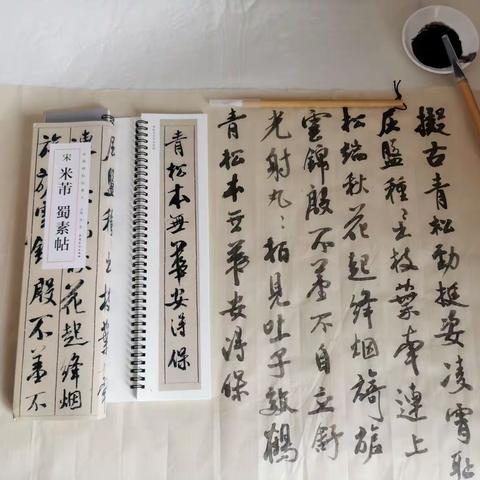 擬古青松勁挺姿凌霄耻
屈盤種〻出枝葉牽連上
松端秋花起絳烟旖旎
雲錦殷不羞不自立舒
光射丸〻柏見吐子效鶴
青松本無華安得保
青松本無華安得保
宋 米芾 蜀素帖
盤種〻出枝葉
連
花起絳烟
旎雲錦殷不羞不